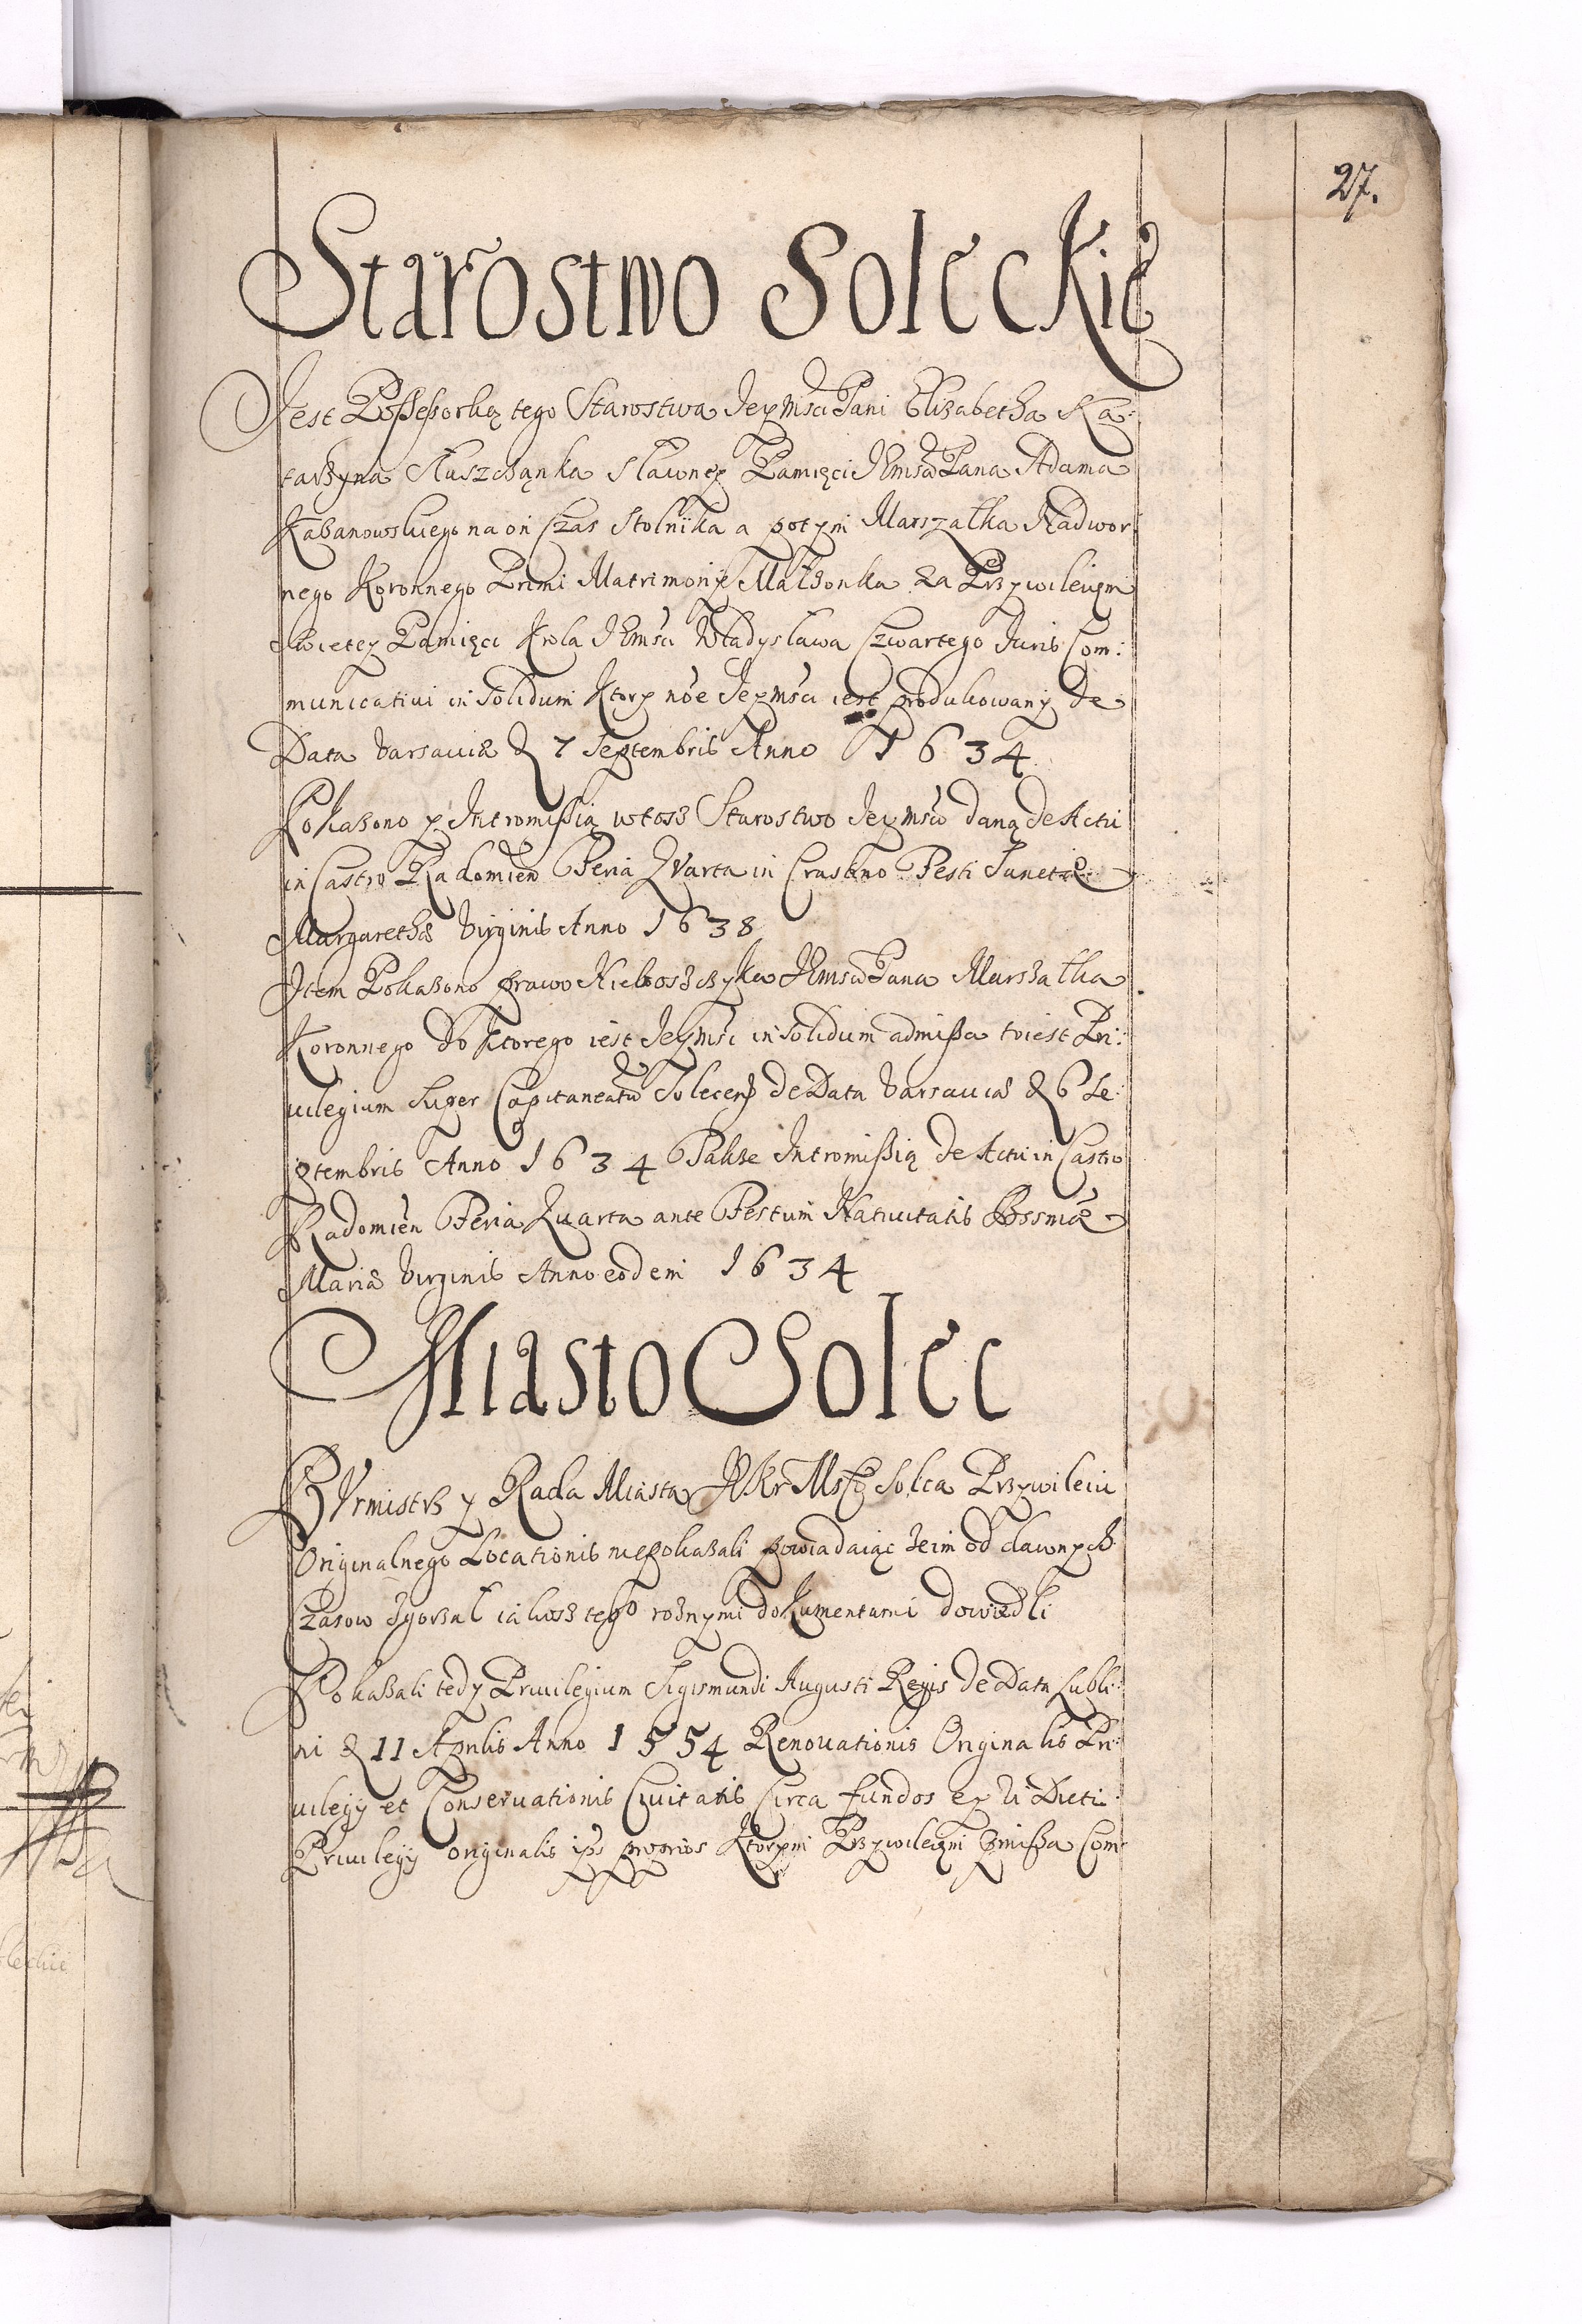 27.
Starostwo Soleckie
Jest Possessorką tego Starostwa Jeymści Pani Elizabetha Ka:
tarzyna Słuszcząnka sławney Pamięci JEmści Pana Adama
Kazanowskiego na on Czas Stolnika a potym Marszałka Nadwor:
nego Koronnego Primi Matrimonij Małżonka Za Przywileiem
Swietey Pamięci Krola JEmści Władysława Czwartego Juris Com:
municatiui in Solidum Ktory nōe Jeymści iest produkowany de
Data Varsauiæ d 7 Septembris Anno 1634
Pokazono y Intromissią w tosz Starostwo Jeymści daną de Actu
in Castro Radomien Feria Quarta in Crastino Festi Sanctæ
Margarethæ Virginis Anno 1638
Item Pokazono prawo Nieboszczyka JEmści Pana Marszałka
Koronnego do Ktorego iest Jeymści in Solidum admissa to iest Pri:
uilegium super Capitaneatū Solecen de Data Varsauiæ d 6 Se:
ptembris Anno 1634 Takze Intromissią de Actu in Castro
Radomien Feria Quarta ante Festum Natiuitatis Bssmæ
Mariæ Virginis Anno eodem 1634
Miasto Solec
BUrmistrz y Rada Miasta JKr Mści Solca Przywileiu
Originalnego Locationis nie pokazali powiadaiąc ze im od dawnych
Czasow Zgorzał iakosz tego roznymi dokumentami dowiedli
Pokazali tedy Priuilegium Sigismundi Augusti Regis de Data Lubli:
ni d 11 Aprilis Anno 1554 Renouationis Originalis Pri:
uilegij et Conseruationis Ciuitatis Circa fundos ex Vi Dicti
Priuilegij originalis ips proprios Ktorym Przywileiem Com: